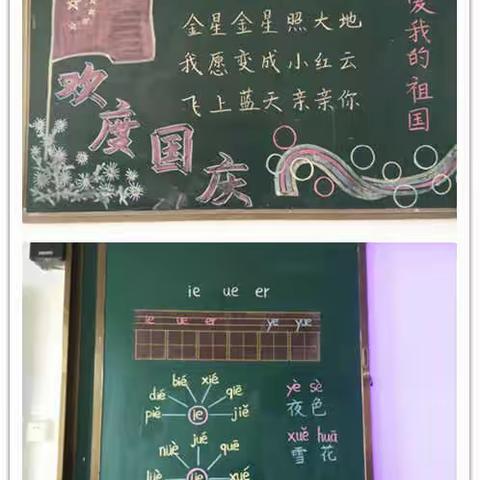 爱我的祖国
金星金星照大地
我愿变成小红云
飞上蓝天亲亲你
欢度国庆
ie ue er
ie ue er ye yue
piě dié bié xié qiē jiě
ie
yè sè
夜色
nüè jué quē
xuě huā
雪花
üe xué